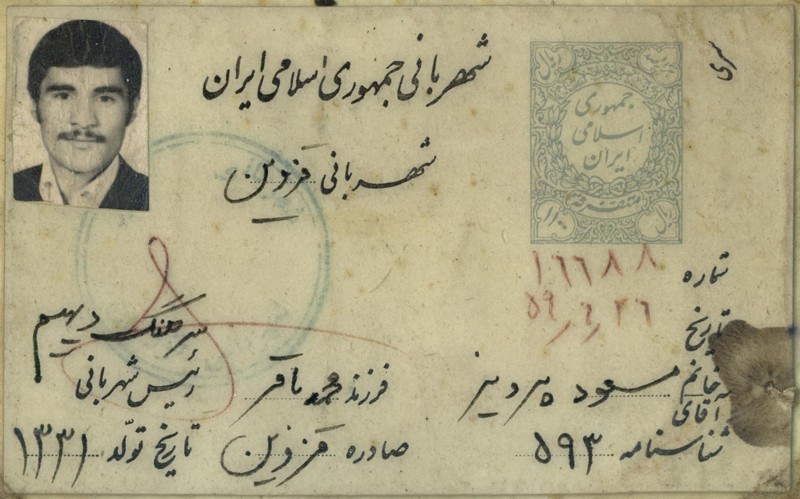 سری
شهربانی جمهوری اسلامی ایران
شهربانی قزوین
ریال
جمهوری
اسلامی
ایران
متفرقه
ریال
۱۱۰
شماره ۱۶۶۸۸
تاریخ ۵۹٫۶٫۲۶
خانم
آقای
مسعود
فرزند محمد باقر
سرهنگ دیهیم
رئیس شهربانی
شناسنامه ۵۹۳ صادره قزوین تاریخ تولد ۱۳۳۱